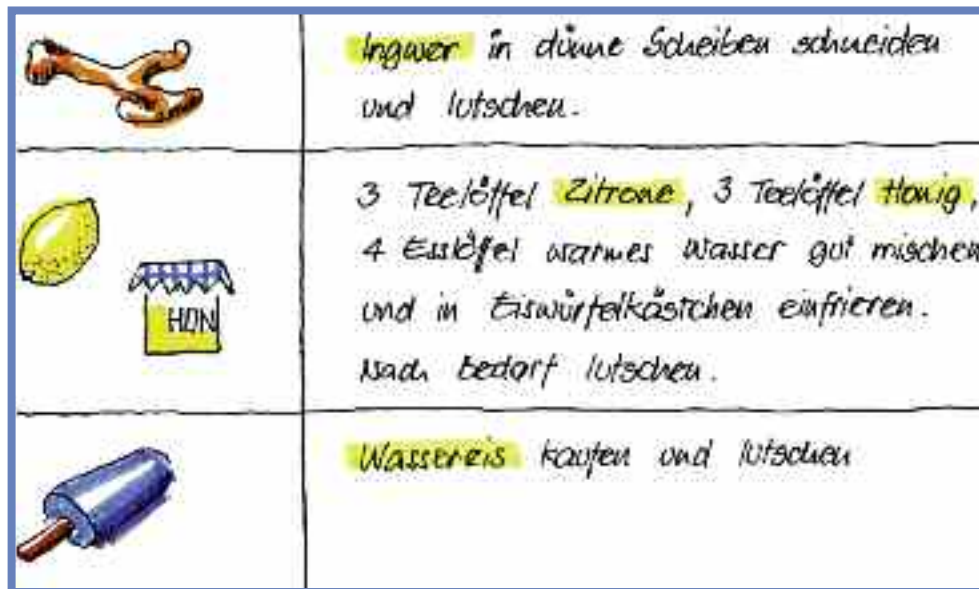 Ingwer in dünne Scheiben schneiden
und lutschen.
3 Teelöffel Zitrone, 3 Teelöffel Honig,
4 Esslöffel warmes Wasser gut mischen
und in Eiswürfelkästchen einfrieren.
Nach Bedarf lutschen.
HON
Wassereis kaufen und lutschen